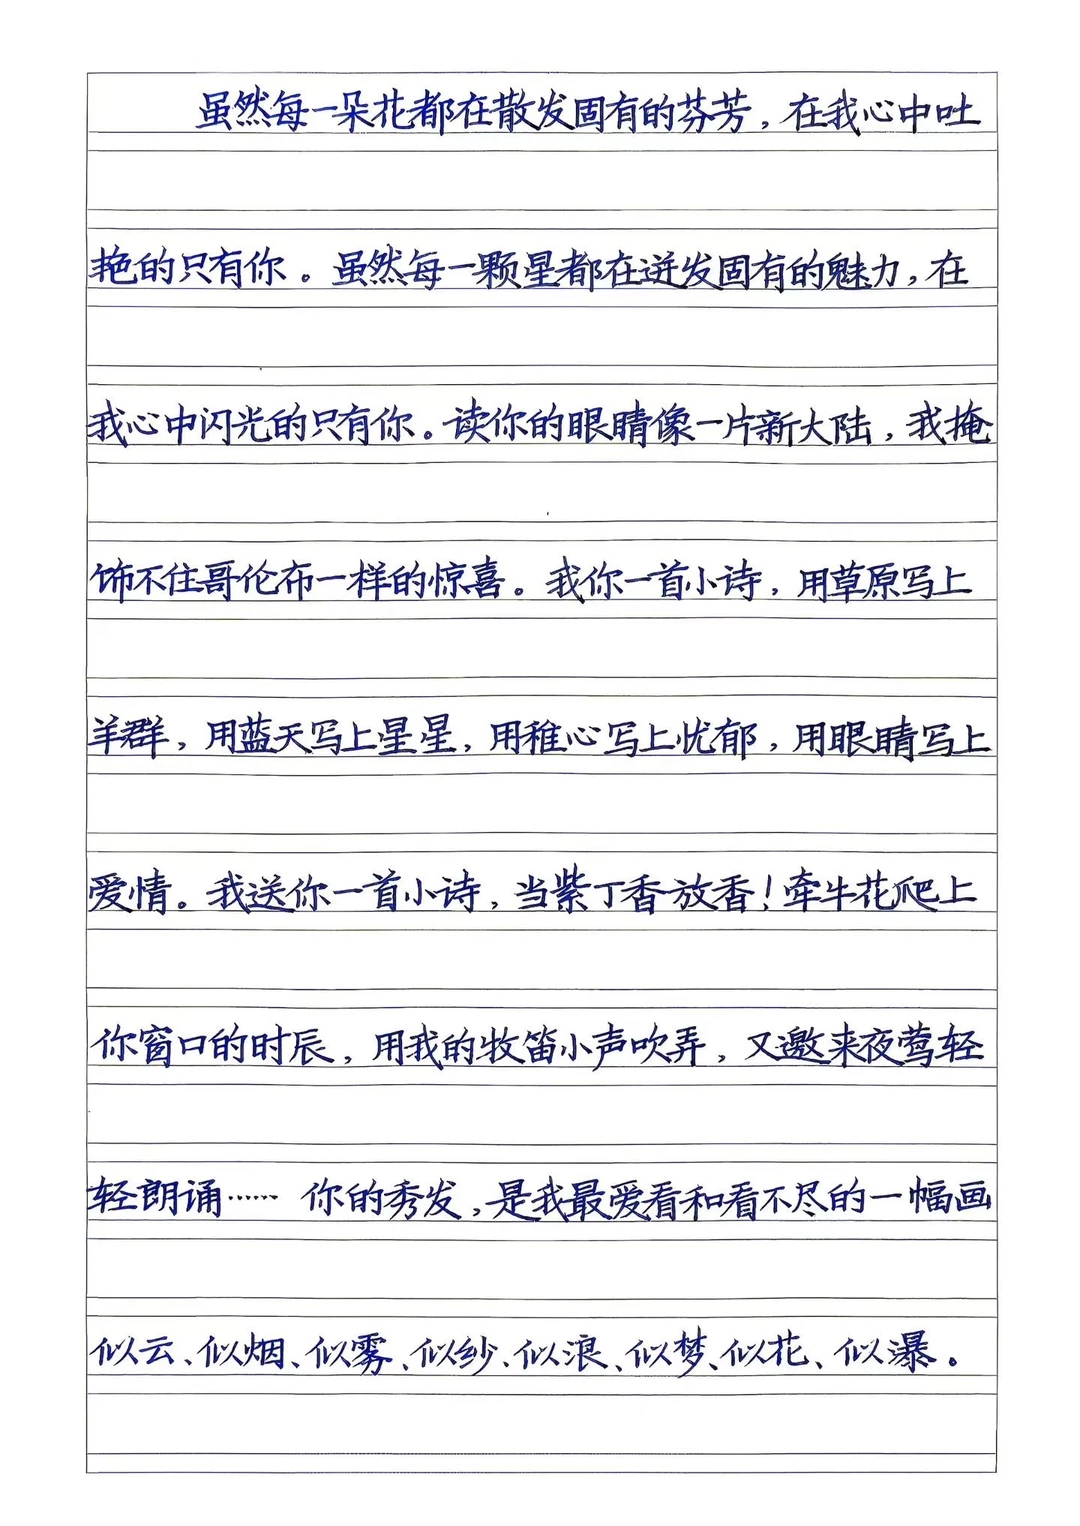 虽然每一朵花都在散发固有的芬芳，在我心中吐
艳的只有你。虽然每一颗星都在迸发固有的魅力，在
我心中闪光的只有你。读你的眼睛像一片新大陆，我掩
饰不住哥伦布一样的惊喜。我你一首小诗，用草原写上
羊群，用蓝天写上星星，用稚心写上忧郁，用眼睛写上
爱情。我送你一首小诗，当紫丁香放香！牵牛花爬上
你窗口的时辰，用我的牧笛小声吹弄，又邀来夜莺轻
轻朗诵…… 你的秀发，是我最爱看和看不尽的一幅画
似云、似烟、似雾、似纱、似浪、似梦、似花、似瀑。